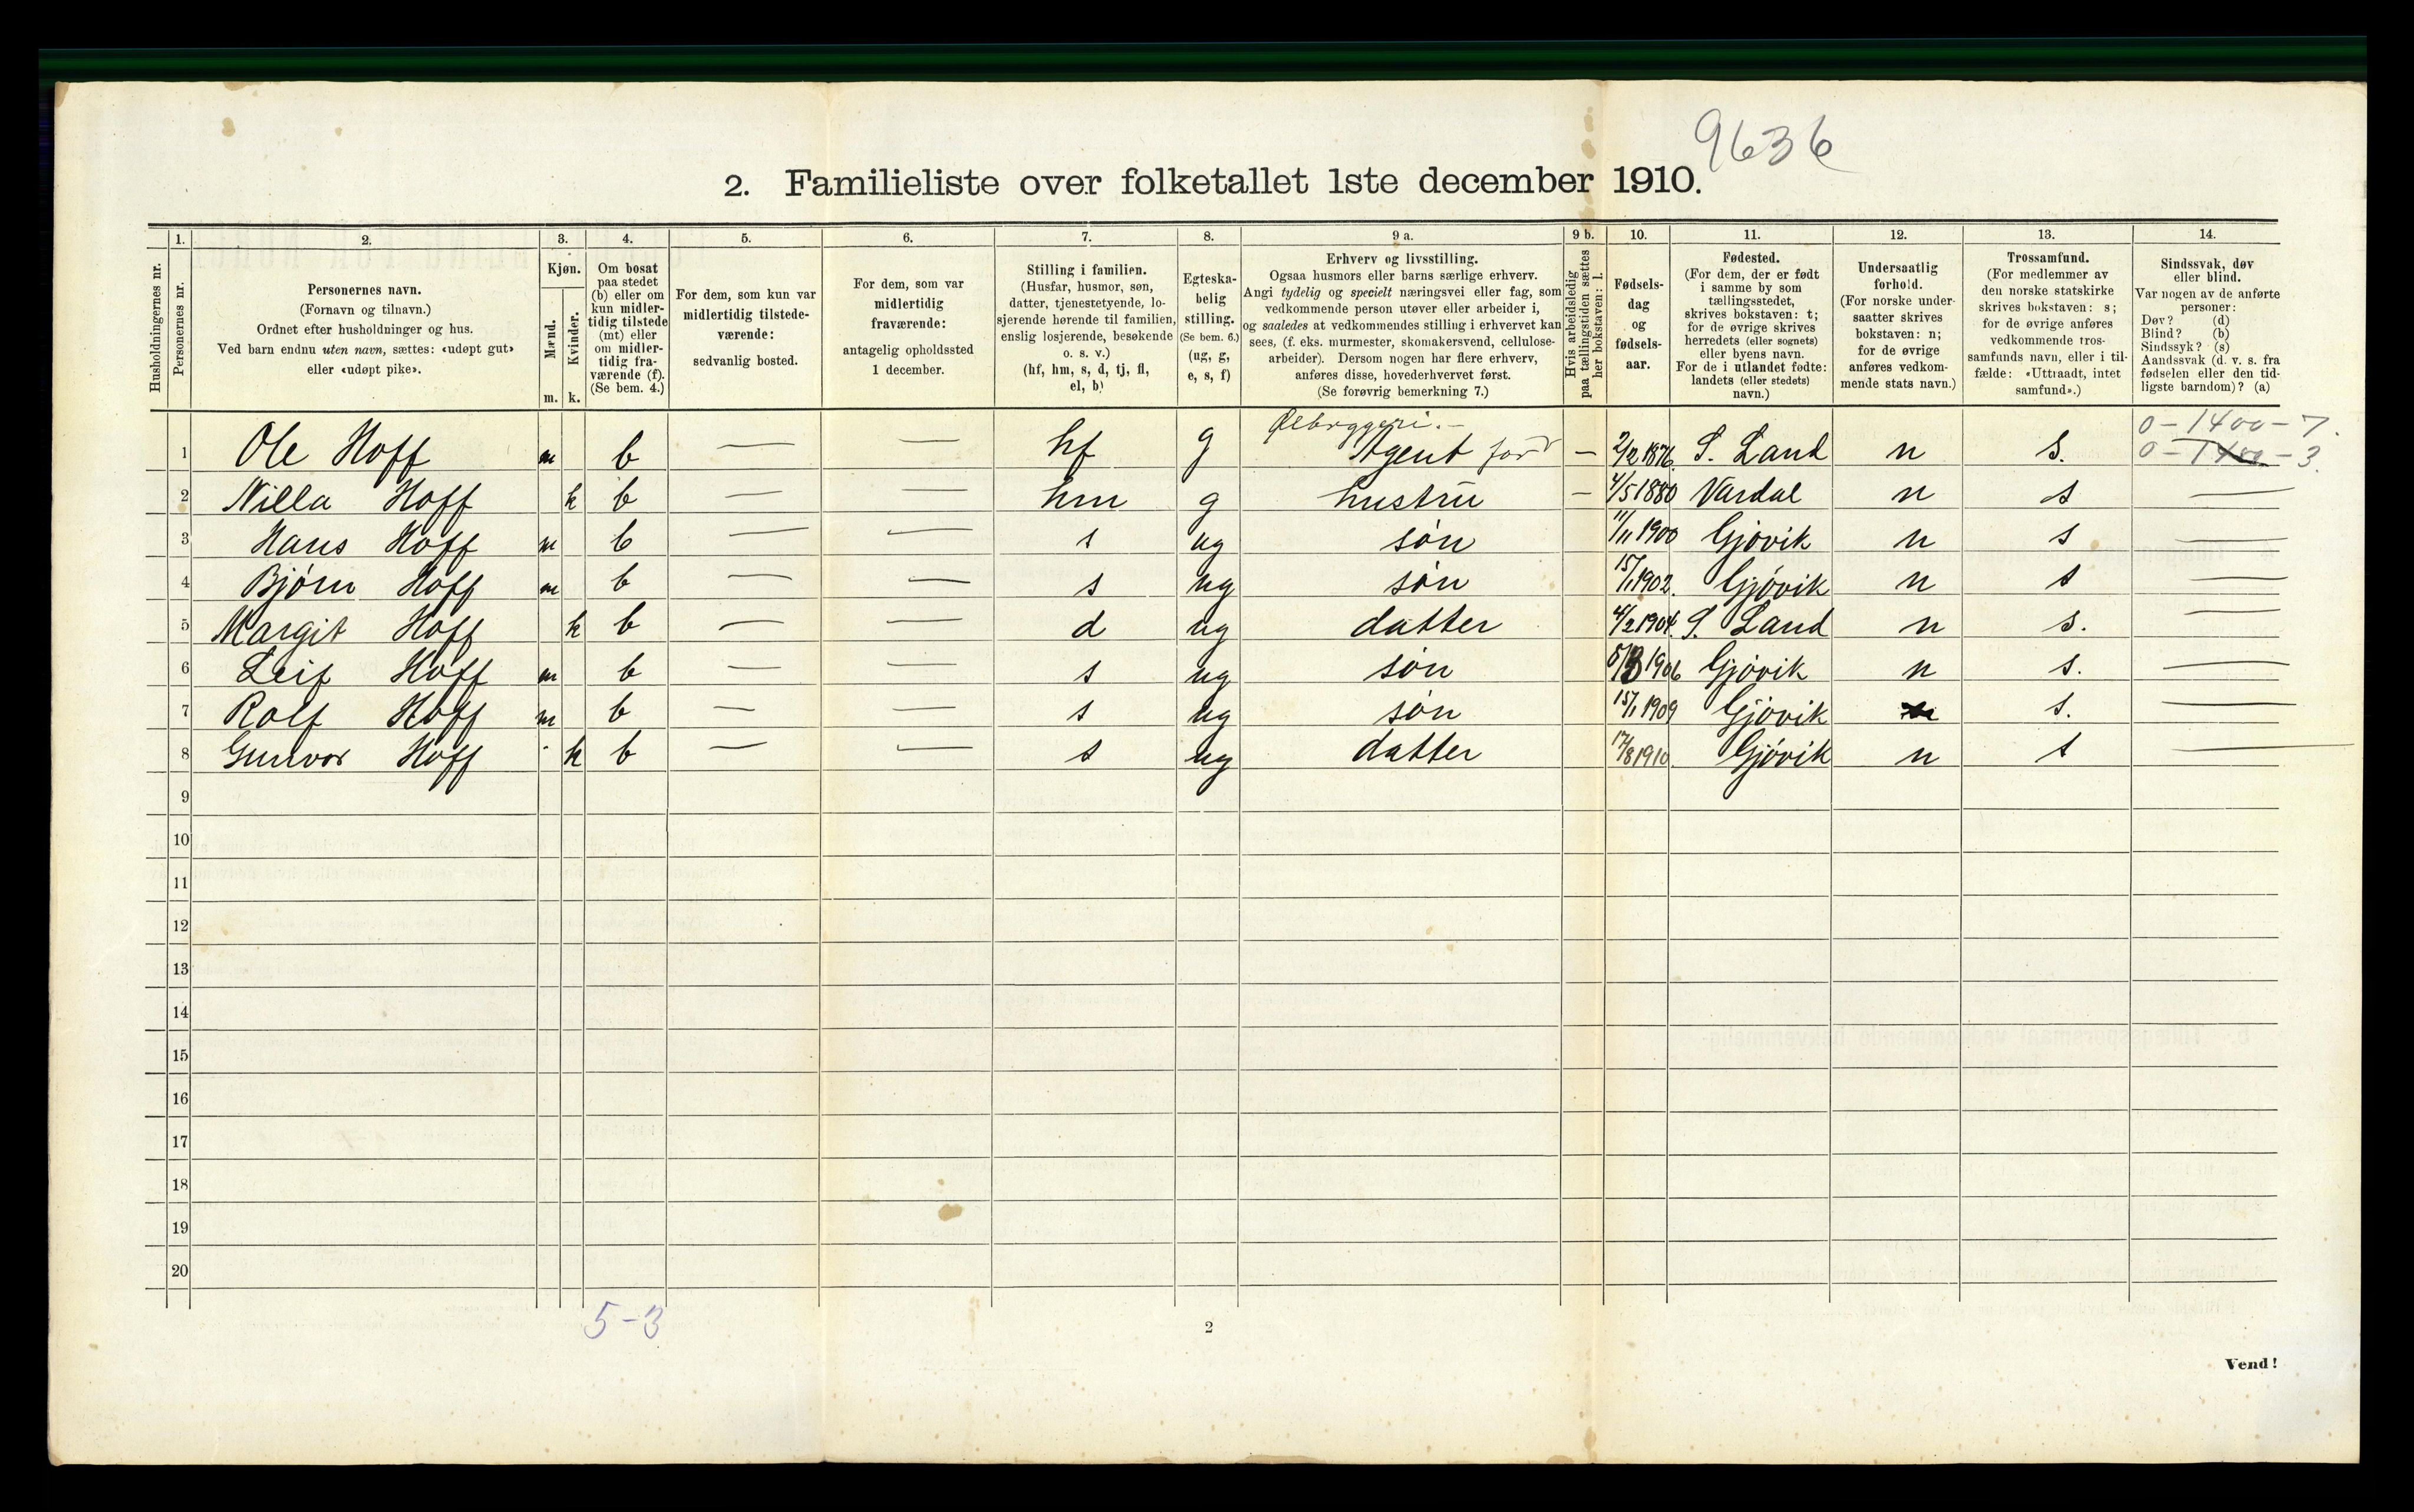 9636
2. Familieliste over folketallet 1ste december 1910.
Husholdningernes nr.
1.
Personernes nr.
2.
Personernes navn.
(Fornavn og tilnavn.)
Ordnet efter husholdninger og hus.
Ved barn endnu uten navn, sættes: «udøpt gut»
eller «udøpt pike».
3.
Kjøn.
Mænd.
Kvinder.
m. k.
4.
Om bosat
paa stedet
(b) eller om
kun midler-
tidig tilstede
(mt) eller
om midler-
tidig fra-
værende (f).
(Se bem. 4.)
5.
For dem, som kun var
midlertidig tilstede-
værende:
sedvanlig bosted.
6.
For dem, som var
midlertidig
fraværende:
antagelig opholdssted
1 december.
7.
Stilling i familien.
(Husfar, husmor, søn,
datter, tjenestetyende, lo-
sjerende hørende til familien,
enslig losjerende, besøkende
o. s. v.)
(hf, hm, s, d, tj, fl,
el, b)
8.
Egteska-
belig
stilling.
(Se bem. 6.)
(ug, g,
e, s, f)
9 a.
Erhverv og livsstilling.
Ogsaa husmors eller barns særlige erhverv.
Angi tydelig og specielt næringsvei eller fag, som
vedkommende person utøver eller arbeider i,
og saaledes at vedkommendes stilling i erhvervet kan
sees, (f. eks. murmester, skomakersvend, cellulose-
arbeider). Dersom nogen har flere erhverv,
anføres disse, hovederhvervet først.
(Se forøvrig bemerkning 7.)
9 b.
Hvis arbeidsledig
paa tællingstiden sættes
her bokstaven: l.
10.
Fødsels-
dag
og
fødsels-
aar.
11.
Fødested.
(For dem, der er født
i samme by som
tællingsstedet,
skrives bokstaven: t;
for de øvrige skrives
herredets (eller sognets)
eller byens navn.
For de i utlandet fødte:
landets (eller stedets)
navn.)
12.
Undersaatlig
forhold.
(For norske under-
saatter skrives
bokstaven: n;
for de øvrige
anføres vedkom-
mende stats navn.)
13.
Trossamfund.
(For medlemmer av
den norske statskirke
skrives bokstaven: s;
for de øvrige anføres
vedkommende tros-
samfunds navn, eller i til-
fælde: «Uttraadt, intet
samfund».)
14.
Sindssvak, døv
eller blind.
Var nogen av de anførte
personer:
Døv? (d)
Blind? (b)
Sindssyk? (s)
Aandssvak (d. v. s. fra
fødselen eller den tid-
ligste barndom)? (a)
Ølbryggeri. 0-1400-7.
1 Ole Hoff m b — — hf g Agent for — 2/2 1876. S. Land n s. 0-1400-3.
2 Nilla Hoff k b — — hm g hustru — 4/5 1880 Vardal n s —
3 Hans Hoff m b — — s ug søn 11/11 1900 Gjøvik n s —
4 Bjørn Hoff m b — — s ug søn 15/1 1902. Gjøvik n s —
5 Margit Hoff k b — — d ug datter 4/2 1904. S. Land n s. —
6 Leif Hoff m b — — s ug søn 5/3 1906 Gjøvik n s. —
7 Rolf Hoff m b — — s ug søn 15/1 1909 Gjøvik n s. —
8 Gunvor Hoff k b — — s ug datter 17/8 1910 Gjøvik n s —
9
10
11
12
13
14
15
16
17
18
19
20
5-3
2
Vend!